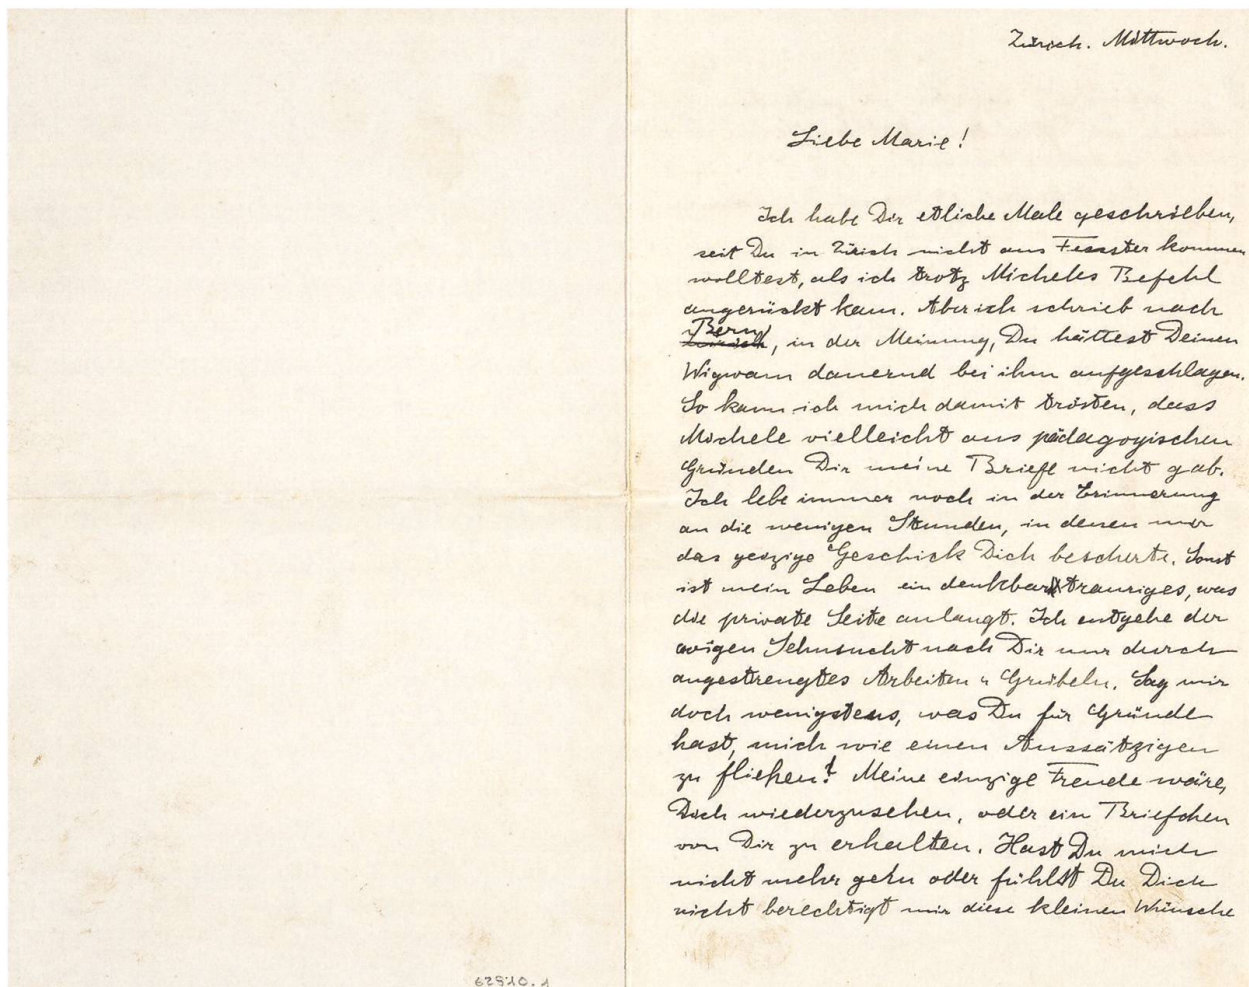 Zürich. Mittwoch.
Liebe Marie!
Ich habe Dir etliche Male geschrieben,
seit Du in Zürich nicht ans Fenster kommen
wolltest, als ich trotz Micheles Befehl
angerückt kam. Aber ich schrieb nach
Bern
Zürich, in der Meinung, Du hättest Deinen
Wigwam dauernd bei ihm aufgeschlagen.
So kann ich mich damit trösten, dass
Michele vielleicht aus pädagogischen
Gründen Dir meine Briefe nicht gab.
Ich lebe immer noch in der Erinnerung
an die wenigen Stunden, in denen mir
das geizige Geschick Dich bescherte. Sonst
ist mein Leben ein denkbar trauriges, was
die private Seite anlangt. Ich entgehe der
ewigen Sehnsucht nach Dir nur durch
angestrengtes Arbeiten u Grübeln. Sag mir
doch wenigstens, was Du für Gründe
hast, mich wie einen Aussätzigen
zu fliehen! Meine einzige Freude wäre,
Dich wiederzusehen, oder ein Briefchen
von Dir zu erhalten. Hast Du mich
nicht mehr gern oder fühlst Du Dich
nicht berechtigt mir diese kleinen Wünsche
62910.1